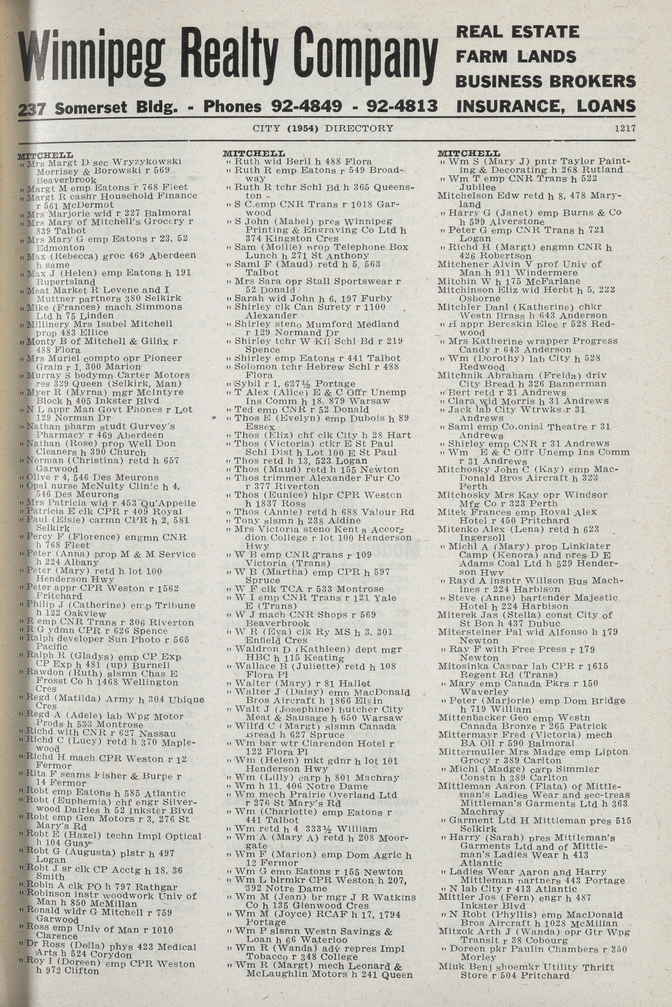 Winnipeg Realty Company
237 Somerset Bldg. - Phones 92-4849 - 92-4813
REAL ESTATE
FARM LANDS
BUSINESS BROKERS
INSURANCE, LOANS
CITY (1954) DIRECTORY 1217
MITCHELL
" Mrs Margt D sec Wryzykowski
Morrisey & Borowski r 569
Beaverbrook
" Margt M emp Eatons r 768 Fleet
" Margt R cashr Household Finance
r 561 McDermot
" Mrs Marjorie wid r 227 Balmoral
" Mary of Mitchell's Grocery r
839 Talbot
" Mrs Mary G emp Eatons r 23, 52
Edmonton
" Max (Rebecca) groc 469 Aberdeen
h same
" Max J (Helen) emp Eatons h 191
Rupertsland
" Meat Market R Levene and I
Muttner partners 380 Selkirk
" Mike (Frances) mach Simmons
Ltd h 75 Linden
" Millinery Mrs Isabel Mitchell
prop 483 Ellice
" Monty B of Mitchell & Gilfix r
488 Flora
" Mrs Muriel compto opr Pioneer
Grain r 1, 300 Marion
" Murray S bodymn Carter Motors
res 329 Queen (Selkirk, Man)
" Myer R (Myrna) mgr McIntyre
Block h 405 Inkster Blvd
" N L appr Man Govt Phones r Lot
129 Norman Dr
" Nathan pharm studt Gurvey's
Pharmacy r 469 Aberdeen
" Nathan (Rose) prop Well Don
Cleaners h 390 Church
" Norman (Christina) retd h 657
Garwood
" Olive r 4, 546 Des Meurons
" Opal nurse McNulty Clinic h 4,
546 Des Meurons
" Mrs Patricia wid r 453 Qu'Appelle
" Patricia E clk CPR r 409 Royal
" Paul (Elsie) carmn CPR h 2, 581
Selkirk
" Percy F (Florence) engmn CNR
h 768 Fleet
" Peter (Anna) prop M & M Service
h 224 Albany
" Peter (Mary) retd h lot 100
Henderson Hwy
" Peter appr CPR Weston r 1562
Pritchard
" Philip J (Catherine) emp Tribune
h 122 Oakview
" R emp CNR Trans r 306 Riverton
" R G ydmn CPR r 626 Spence
" Ralph developer Sun Photo r 565
Pacific
" Ralph R (Gladys) emp CP Exp
CP Exp h 481 (up) Burnell
" Rawdon (Ruth) slsmn Chas E
Frosst Co h 1468 Wellington
Cres
" Regd (Matilda) Army h 304 Ubique
Cres
" Regd A (Adele) lab Wpg Motor
Prods h 533 Montrose
" Richd with CNR r 627 Nassau
" Richd C (Lucy) retd h 370 Maple-
wood
" Richd H mach CPR Weston r 12
Fermor
" Rita F seams Fisher & Burpe r
14 Fermor
" Robt emp Eatons h 585 Atlantic
" Robt (Euphemia) chf engr Silver-
wood Dairies h 52 Inkster Blvd
" Robt emp Gen Motors r 3, 276 St
Mary's Rd
" Robt E (Hazel) techn Impl Optical
h 104 Guay
" Robt G (Augusta) plstr h 497
Logan
" Robt J sr clk CP Acctg h 18, 36
Smith
" Robin A clk PO h 797 Rathgar
" Robinson instr woodwork Univ of
Man h 850 McMillan
" Ronald wldr G Mitchell r 759
Garwood
" Ross emp Univ of Man r 1010
Clarence
" Dr Ross (Della) phys 423 Medical
Arts h 524 Corydon
" Roy I (Doreen) emp CPR Weston
h 972 Clifton
MITCHELL
" Ruth wid Beril h 488 Flora
" Ruth R emp Eatons r 549 Broad-
way
" Ruth R tchr Schl Bd h 365 Queens-
ton
" S C emp CNR Trans r 1018 Gar-
wood
" S John (Mabel) pres Winnipeg
Printing & Engraving Co Ltd h
374 Kingston Cres
" Sam (Mollie) prop Telephone Box
Lunch h 271 St Anthony
" Saml F (Maud) retd h 5, 563
Talbot
" Mrs Sara opr Stall Sportswear r
52 Donald
" Sarah wid John h 6, 197 Furby
" Shirley clk Can Surety r 1100
Alexander
" Shirley steno Mumford Medland
r 129 Normand Dr
" Shirley tchr W Kil Schl Bd r 219
Spence
" Shirley emp Eatons r 441 Talbot
" Solomon tchr Hebrew Schl r 488
Flora
" Sybil r 1, 637½ Portage
" T Alex (Alice) E & C Offr Unemp
Ins Comm h 18, 879 Warsaw
" Ted emp CNR r 52 Donald
" Thos E (Evelyn) emp Dubois h 89
Essex
" Thos (Eliz) chf clk City h 28 Hart
" Thos (Victoria) ctkr E St Paul
Schl Dist h Lot 100 E St Paul
" Thos retd h 13, 523 Logan
" Thos (Maud) retd h 155 Newton
" Thos trimmer Alexander Fur Co
r 377 Riverton
" Thos (Eunice) hlpr CPR Weston
h 1837 Ross
" Thos (Annie) retd h 688 Valour Rd
" Tony slsmn h 238 Aldine
" Mrs Victoria steno Kent's Accor-
dion College r lot 100 Henderson
Hwy
" W B emp CNR Trans r 109
Victoria (Trans)
" W B (Martha) emp CPR h 597
Spruce
" W F clk TCA r 533 Montrose
" W I emp CNR Trans r 121 Yale
E (Trans)
" W J mach CNR Shops r 569
Beaverbrook
" W R (Eva) clk Ry MS h 3, 301
Enfield Cres
" Waldron D (Kathleen) dept mgr
HBC h 115 Keating
" Wallace B (Juliette) retd h 108
Flora Pl
" Walter (Mary) r 81 Hallet
" Walter J (Daisy) emn MacDonald
Bros Aircraft h 1866 Elgin
" Walt J (Josephine) butcher City
Meat & Sausage h 650 Warsaw
" Wilfd C (Margt) slsmn Canada
Bread h 627 Spruce
" Wm bar wtr Clarendon Hotel r
122 Flora Pl
" Wm (Helen) mkt gdnr h lot 101
Henderson Hwy
" Wm (Lilly) carp h 801 Machray
" Wm h 11, 406 Notre Dame
" Wm mech Prairie Overland Ltd
r 276 St Mary's Rd
" Wm (Charlotte) emp Eatons r
441 Talbot
" Wm retd h 4, 333½ William
" Wm A (Mary A) retd h 208 Moor-
gate
" Wm F (Marion) emp Dom Agric h
12 Fermor
" Wm G emn Eatons r 155 Newton
" Wm L blrmkr CPR Weston h 207,
392 Notre Dame
" Wm M (Jean) br mgr J R Watkins
Co h 135 Glenwood Cres
" Wm M (Joyce) RCAF h 17, 1794
Portage
" Wm P slsmn Westn Savings &
Loan h 66 Waterloo
" Wm R (Wanda) adv repres Impl
Tobacco r 348 College
" Wm R (Margt) mech Leonard &
McLaughlin Motors h 241 Queen
MITCHELL
" Wm S (Mary J) pntr Taylor Paint-
ing & Decorating h 268 Rutland
" Wm T emp CNR Trans h 522
Jubilee
Mitchelson Edw retd h 8, 478 Mary-
land
" Harry G (Janet) emp Burns & Co
h 599 Alverstone
" Peter G emp CNR Trans h 721
Logan
" Richd H (Margt) engmn CNR h
426 Robertson
Mitchener Alvin V prof Univ of
Man h 911 Windermere
Mitchin W h 175 McFarlane
Mitchinson Eliz wid Herbt h 5, 222
Osborne
Mitchler Danl (Katherine) chkr
Westn Brass h 643 Anderson
" H appr Bereskin Elec r 528 Red-
wood
" Mrs Katherine wrapper Progress
Candy r 643 Anderson
" Wm (Dorothy) lab City h 528
Redwood
Mitchnik Abraham (Freida) driv
City Bread h 326 Bannerman
" Bert retd r 31 Andrews
" Clara wid Morris h 31 Andrews
" Jack lab City Wtrwks r 31
Andrews
" Saml emp Colonial Theatre r 31
Andrews
" Shirley emp CNR r 31 Andrews
" Wm E & C Offr Unemp Ins Comm
r 31 Andrews
Mitchosky John C (Kay) emp Mac-
Donald Bros Aircraft h 323
Perth
Mitchosky Mrs Kay opr Windsor
Mfg Co r 323 Perth
Mitek Frances emp Royal Alex
Hotel r 450 Pritchard
Mitenko Alex (Lena) retd h 623
Ingersoll
" Michl A (Mary) prop Linklater
Camp (Kenora) and pres D E
Adams Coal Ltd h 529 Hender-
son Hwy
" Rayd A insptr Willson Bus Mach-
ines r 224 Harbison
" Steve (Anne) bartender Majestic
Hotel h 224 Harbison
Miterek Jas (Stella) const City of
St Bon h 437 Dubuc
Mitersteiner Pal wid Alfonso h 179
Newton
" Ray F with Free Press r 179
Newton
Mitosinka Casnar lab CPR r 1615
Regent Rd (Trans)
" Mary emp Canada Pkrs r 150
Waverley
" Peter (Marjorie) emp Dom Bridge
h 719 William
Mittenbacker Geo emp Westn
Canada Bronze r 265 Patrick
Mittermayr Fred (Victoria) mech
BA Oil r 590 Balmoral
Mittermuller Mrs Madge emp Lipton
Grocy r 389 Carlton
" Michl (Madge) carp Simmler
Constn h 389 Carlton
Mittleman Aaron (Flata) of Mittle-
man's Ladies Wear and sec-treas
Mittleman's Garments Ltd h 363
Machray
" Garment Ltd H Mittleman pres 515
Selkirk
" Harry (Sarah) pres Mittleman's
Garments Ltd and of Mittle-
man's Ladies Wear h 413
Atlantic
" Ladies Wear Aaron and Harry
Mittleman partners 443 Portage
" N lab City r 413 Atlantic
Mittler Jos (Fern) engr h 487
Inkster Blvd
" N Robt (Phyllis) emp MacDonald
Bros Aircraft h 1028 McMillan
Mitzok Arth J (Wanda) opr Gtr Wpg
Transit r 38 Cobourg
" Doreen pkr Paulin Chambers r 350
Morley
Miuk Benj shoemkr Utility Thrift
Store r 504 Pritchard